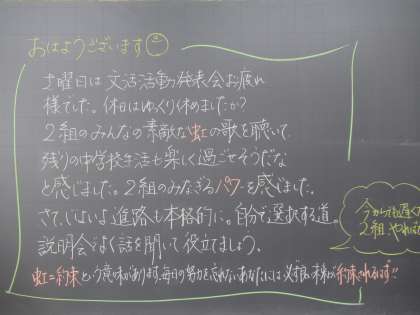 おはようございます
土曜日は文活活動発表会お疲れ
様でした。休日はゆっくり休めましたか?
2組のみんなの素敵な虹の歌を聴いて
残りの中学校生活も楽しく過ごせそうだな
と感じました。2組のみなぎるパワーを感じました。
さて、いよいよ進路も本格的に。自分で選択する道。
説明会でよく話を聞いて役立てましょう。
虹=約束という意味があります。毎日の努力を忘れないあなたには必ず良い未来が約束されるはず!!
今からでも遅く
2組 やれば